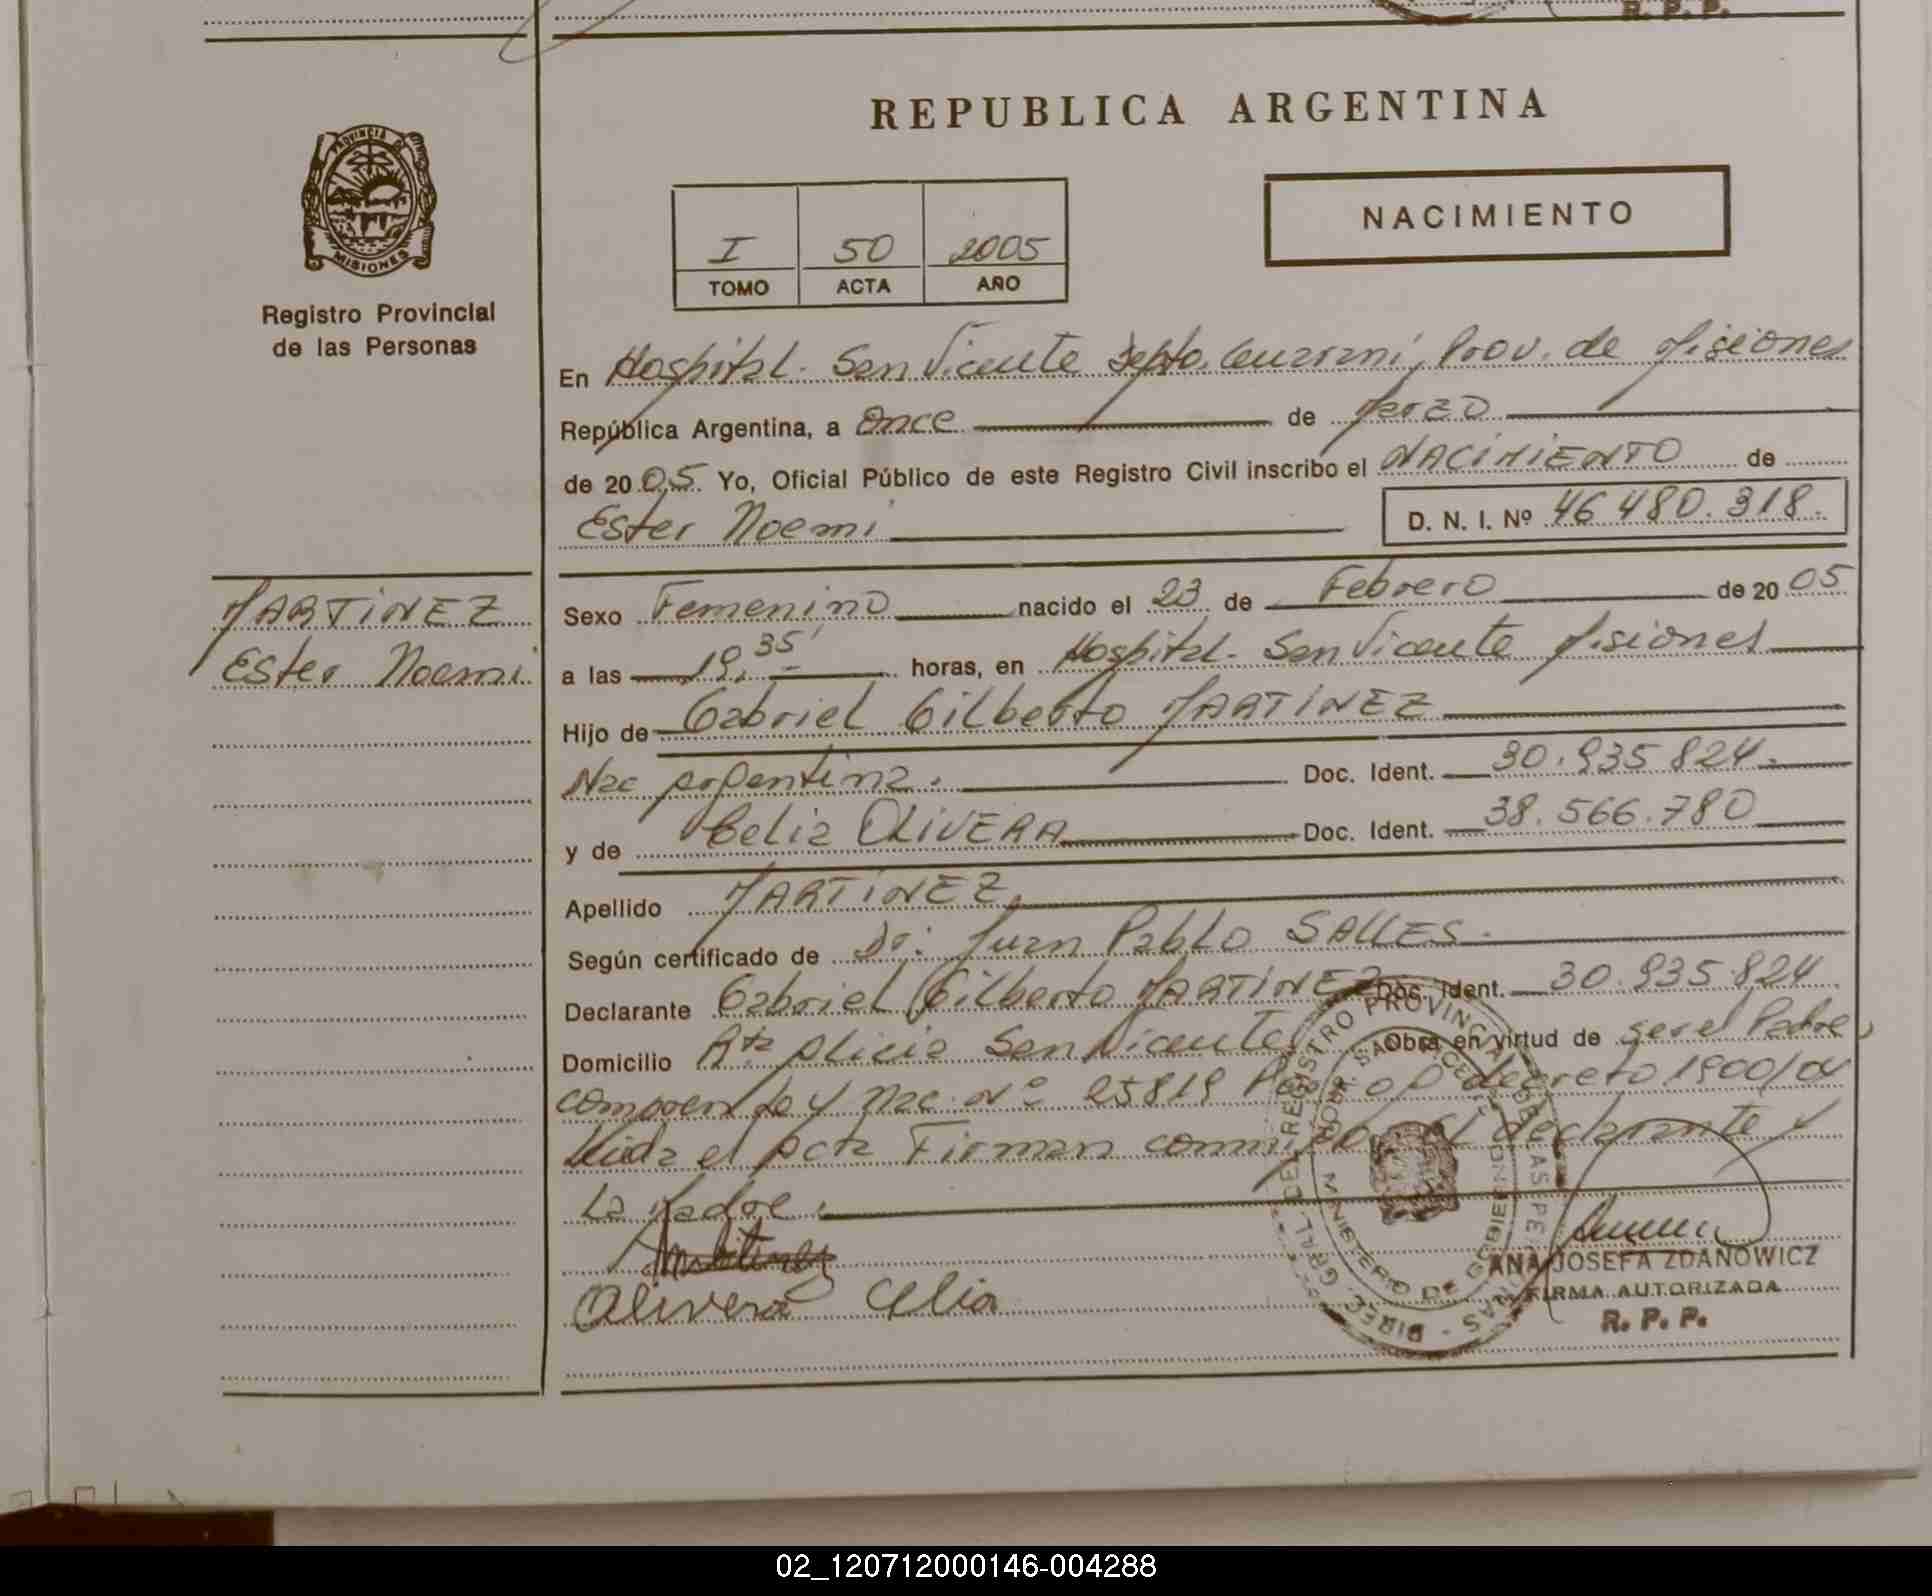 R. P. P.
REPUBLICA ARGENTINA
PROVINCIA DE
MISIONES
Registro Provincial
de las Personas
NACIMIENTO
I 50 2005
TOMO ACTA AÑO
En Hospital. San Vicente Depto. Guarani, Prov. de Misiones
República Argentina, a Once de Marzo
de 2005. Yo, Oficial Público de este Registro Civil inscribo el NACIMIENTO de
Ester Noemi D. N. I. Nº 46 480.318.
MARTINEZ
Ester Noemi
Sexo Femenino nacido el 23 de Febrero de 2005
a las 19,35 horas, en Hospital. San Vicente Misiones
Hijo de Gabriel Gilberto MARTINEZ
Nac Argentina. Doc. Ident. 30.935.824.
y de Celia OLIVERA Doc. Ident. 38.566.780
Apellido MARTINEZ
Según certificado de Dr. Juan Pablo SALLES.
Declarante Gabriel Gilberto MARTINEZ Doc. Ident. 30.935.824
Domicilio Rta Alicia San Vicente Obra en virtud de ser el Padre,
Nac. Nº 25819 decreto 1900/04
Leida el Acta Firman conmigo el declarante y
La Madre.
Olivera Celia
ANA JOSEFA ZDANOWICZ
FIRMA AUTORIZADA
R. P. P.
DIREC. GRAL. DEL REGISTRO PROVINCIAL DE LAS PERSONAS
MINISTERIO DE GOBIERNO
02_120712000146-004288